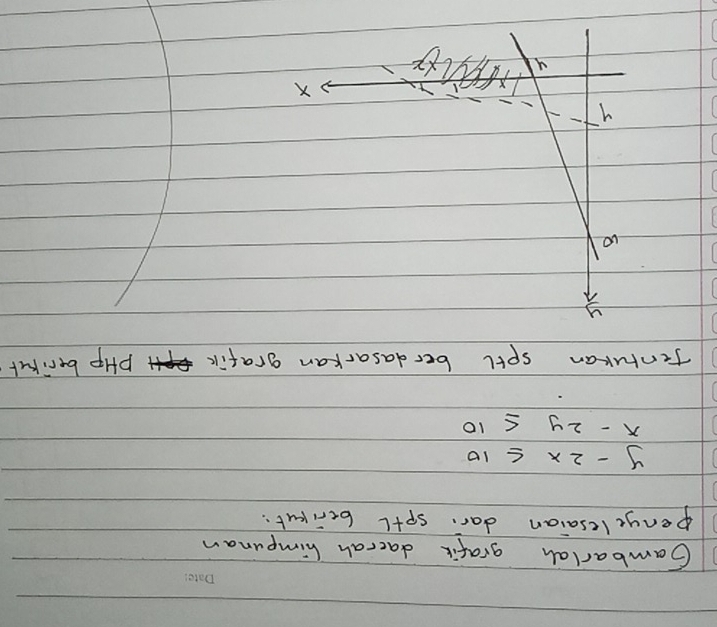 Date:
Gambarlah grafik daerah himpunan
penyelesaian dari sptl berikut:
y - 2x ≤ 10
x - 2y ≤ 10
Tentukan sptl berdasarkan grafik PHP berikut.
y
8
4
4
x